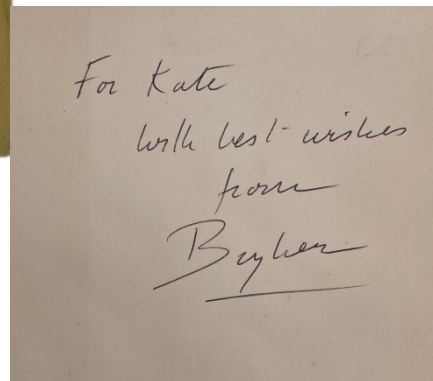 For Kate
with best wishes
from
Bryher